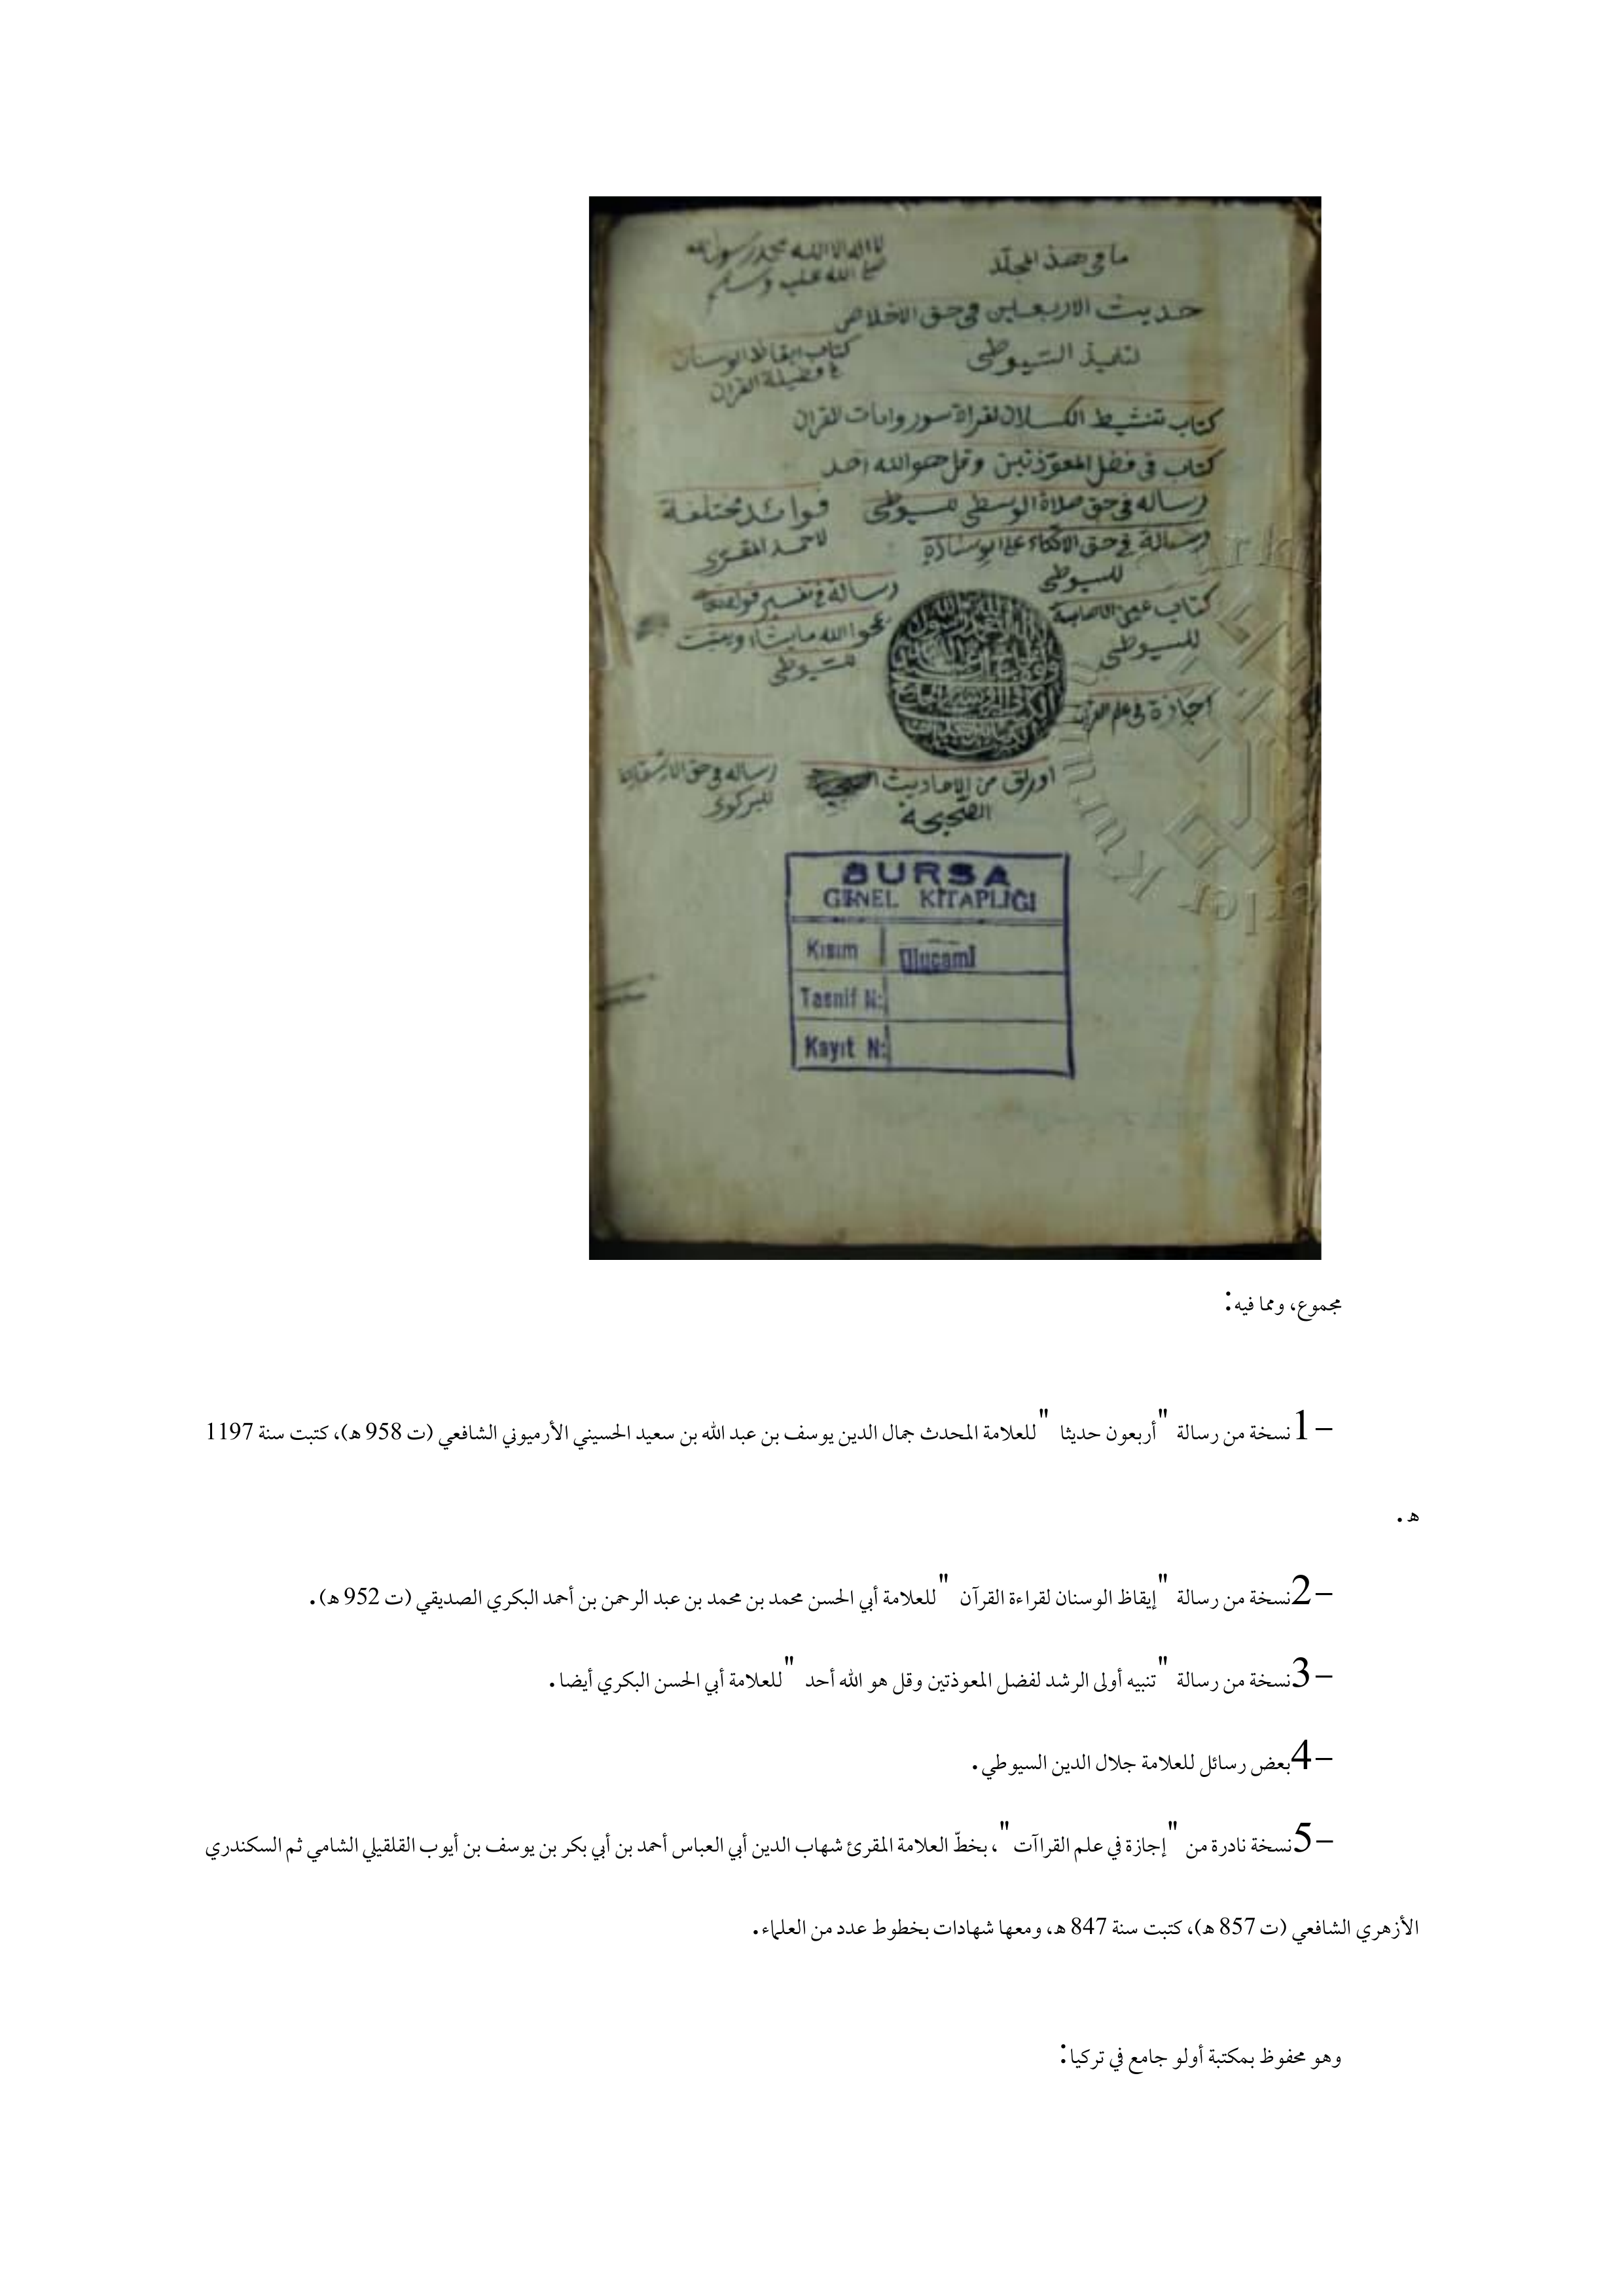 ما في هذا المجلد
لا اله الا الله محمد رسول الله
صلى الله عليه وسلم
حديث الاربعين في حق الاخلاص
لتلميذ السيوطي
كتاب ايقاظ الوسنان
في فضيلة القران
كتاب تنشيط الكسلان لقراة سور وايات القران
كتاب في فضل المعوذتين وقل هو الله احد
رساله في حق صلاة الوسطى للسيوطي
فوائد مختلفة
لاحمد المقرى
رسالة في حق الاتكاء على الوسادة
للسيوطي
رسالة في تفسير قوله
يمحوا الله ما يشاء ويثبت
للسيوطي
كتاب عين الاصابة
للسيوطي
اجازة في علم القران
اوراق من الاحاديث
الصحيحة
رساله في حق
للبركوى
BURSA
GENEL KİTAPLIĞI
Kısım Ulucami
Tasnif N:
Kayıt N:
مجموع، ومما فيه:
1– نسخة من رسالة "أربعون حديثا" للعلامة المحدث جمال الدين يوسف بن عبد الله بن سعيد الحسيني الأرميوني الشافعي (ت 958 ه)، كتبت سنة 1197
ه.
2– نسخة من رسالة "إيقاظ الوسنان لقراءة القرآن" للعلامة أبي الحسن محمد بن محمد بن عبد الرحمن بن أحمد البكري الصديقي (ت 952 ه).
3– نسخة من رسالة "تنبيه أولى الرشد لفضل المعوذتين وقل هو الله أحد" للعلامة أبي الحسن البكري أيضا.
4– بعض رسائل للعلامة جلال الدين السيوطي.
5– نسخة نادرة من "إجازة في علم القراآت"، بخطّ العلامة المقرئ شهاب الدين أبي العباس أحمد بن أبي بكر بن يوسف بن أيوب القلقيلي الشامي ثم السكندري
الأزهري الشافعي (ت 857 ه)، كتبت سنة 847 ه، ومعها شهادات بخطوط عدد من العلماء.
وهو محفوظ بمكتبة أولو جامع في تركيا: